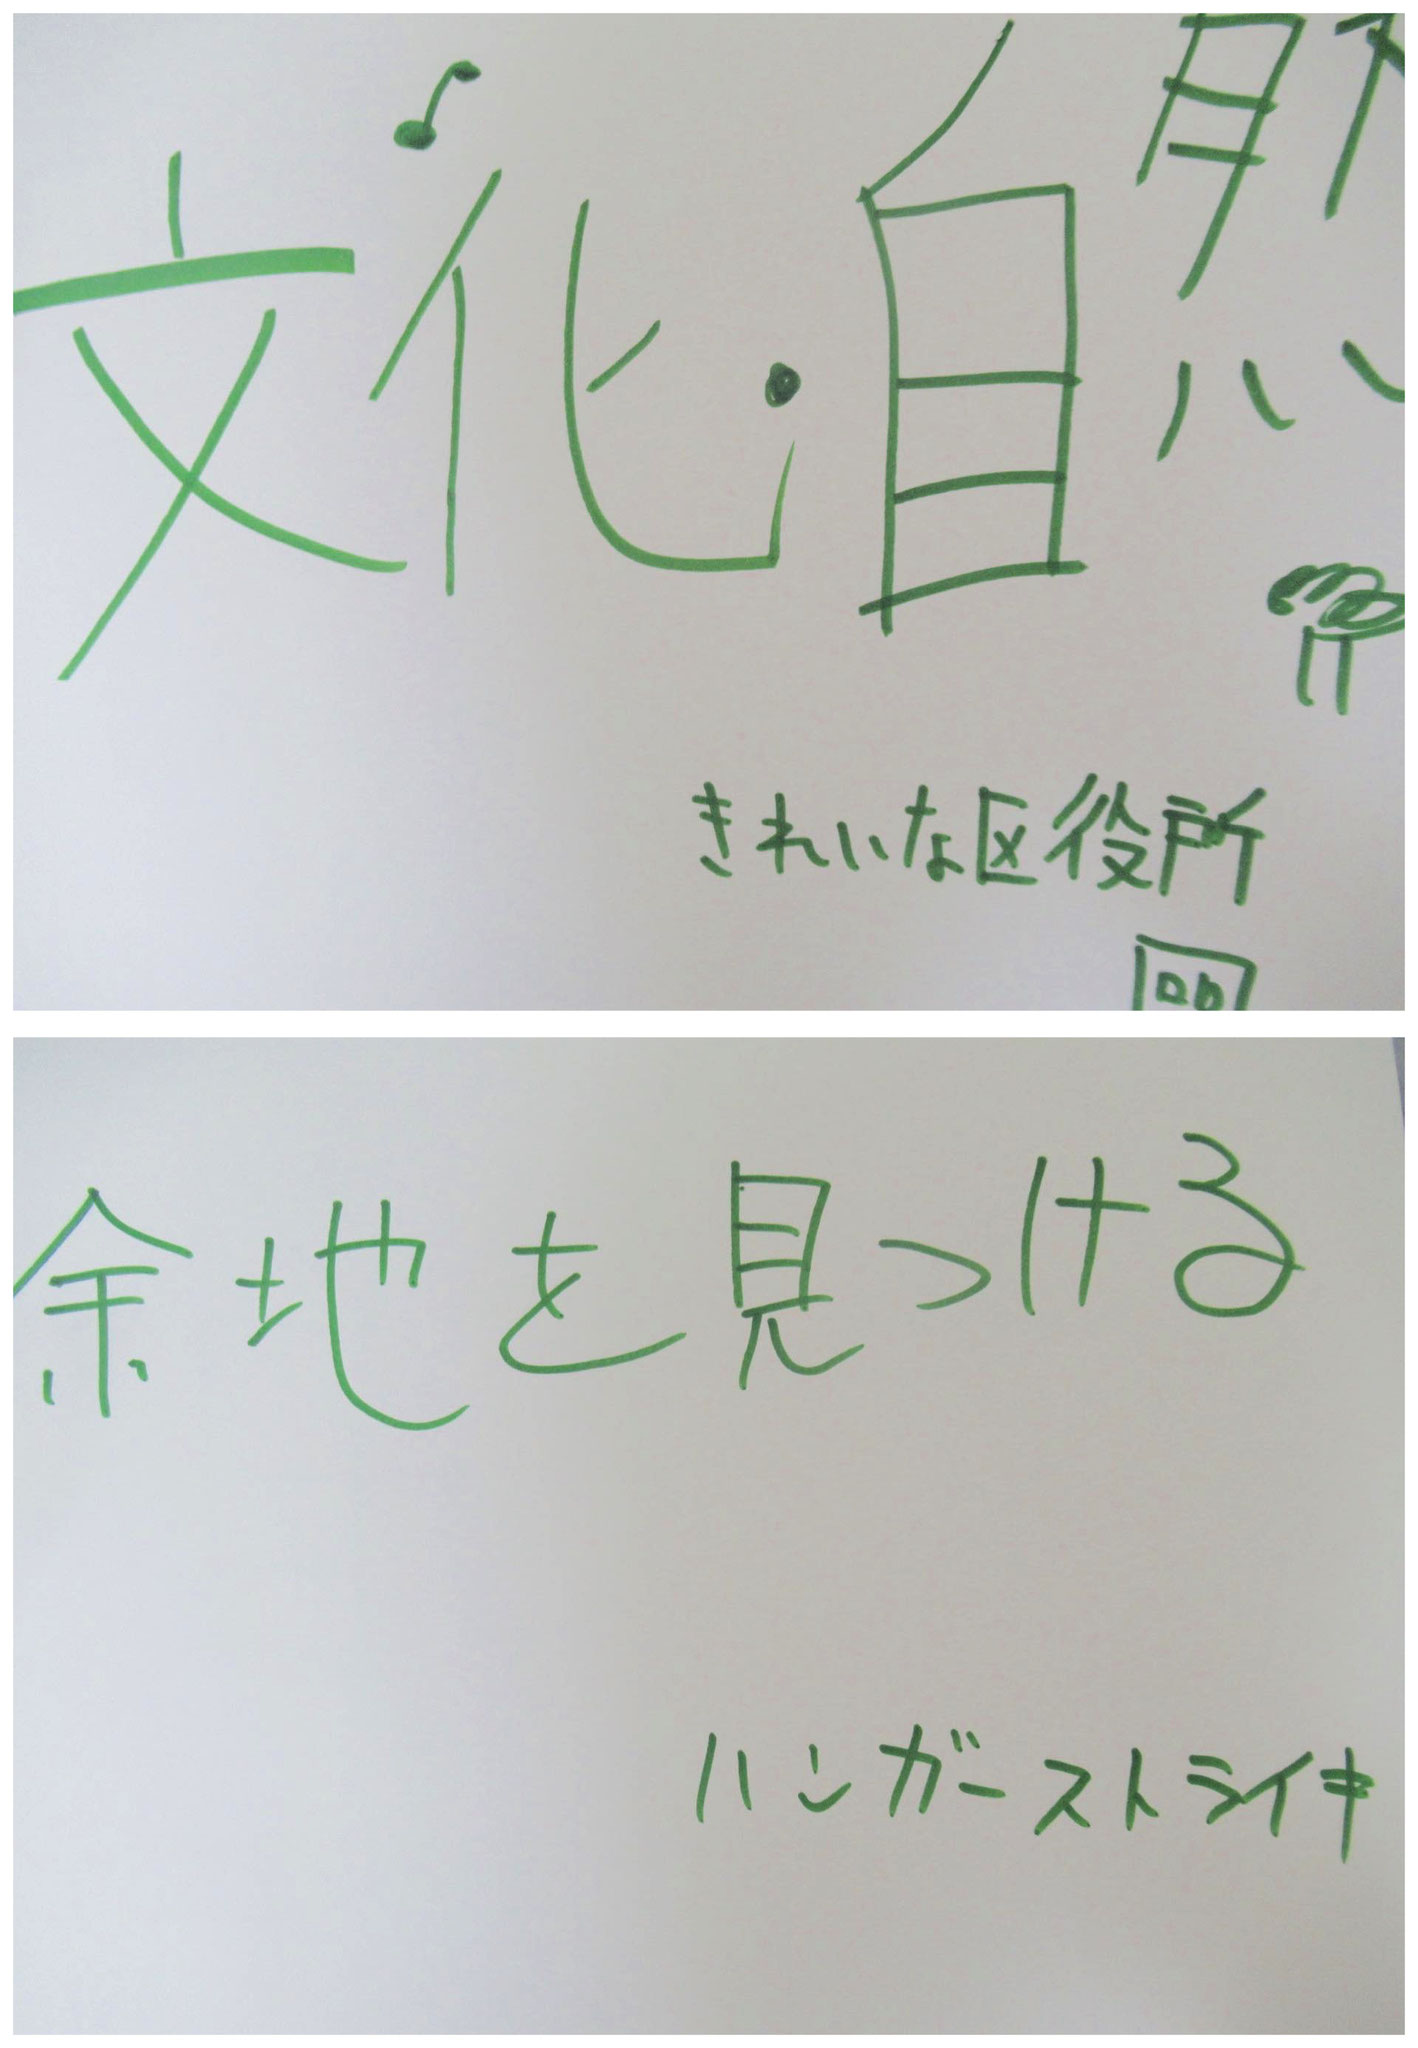 文化・自然
きれいな区役所
余地を見つける
ハンガーストライキ